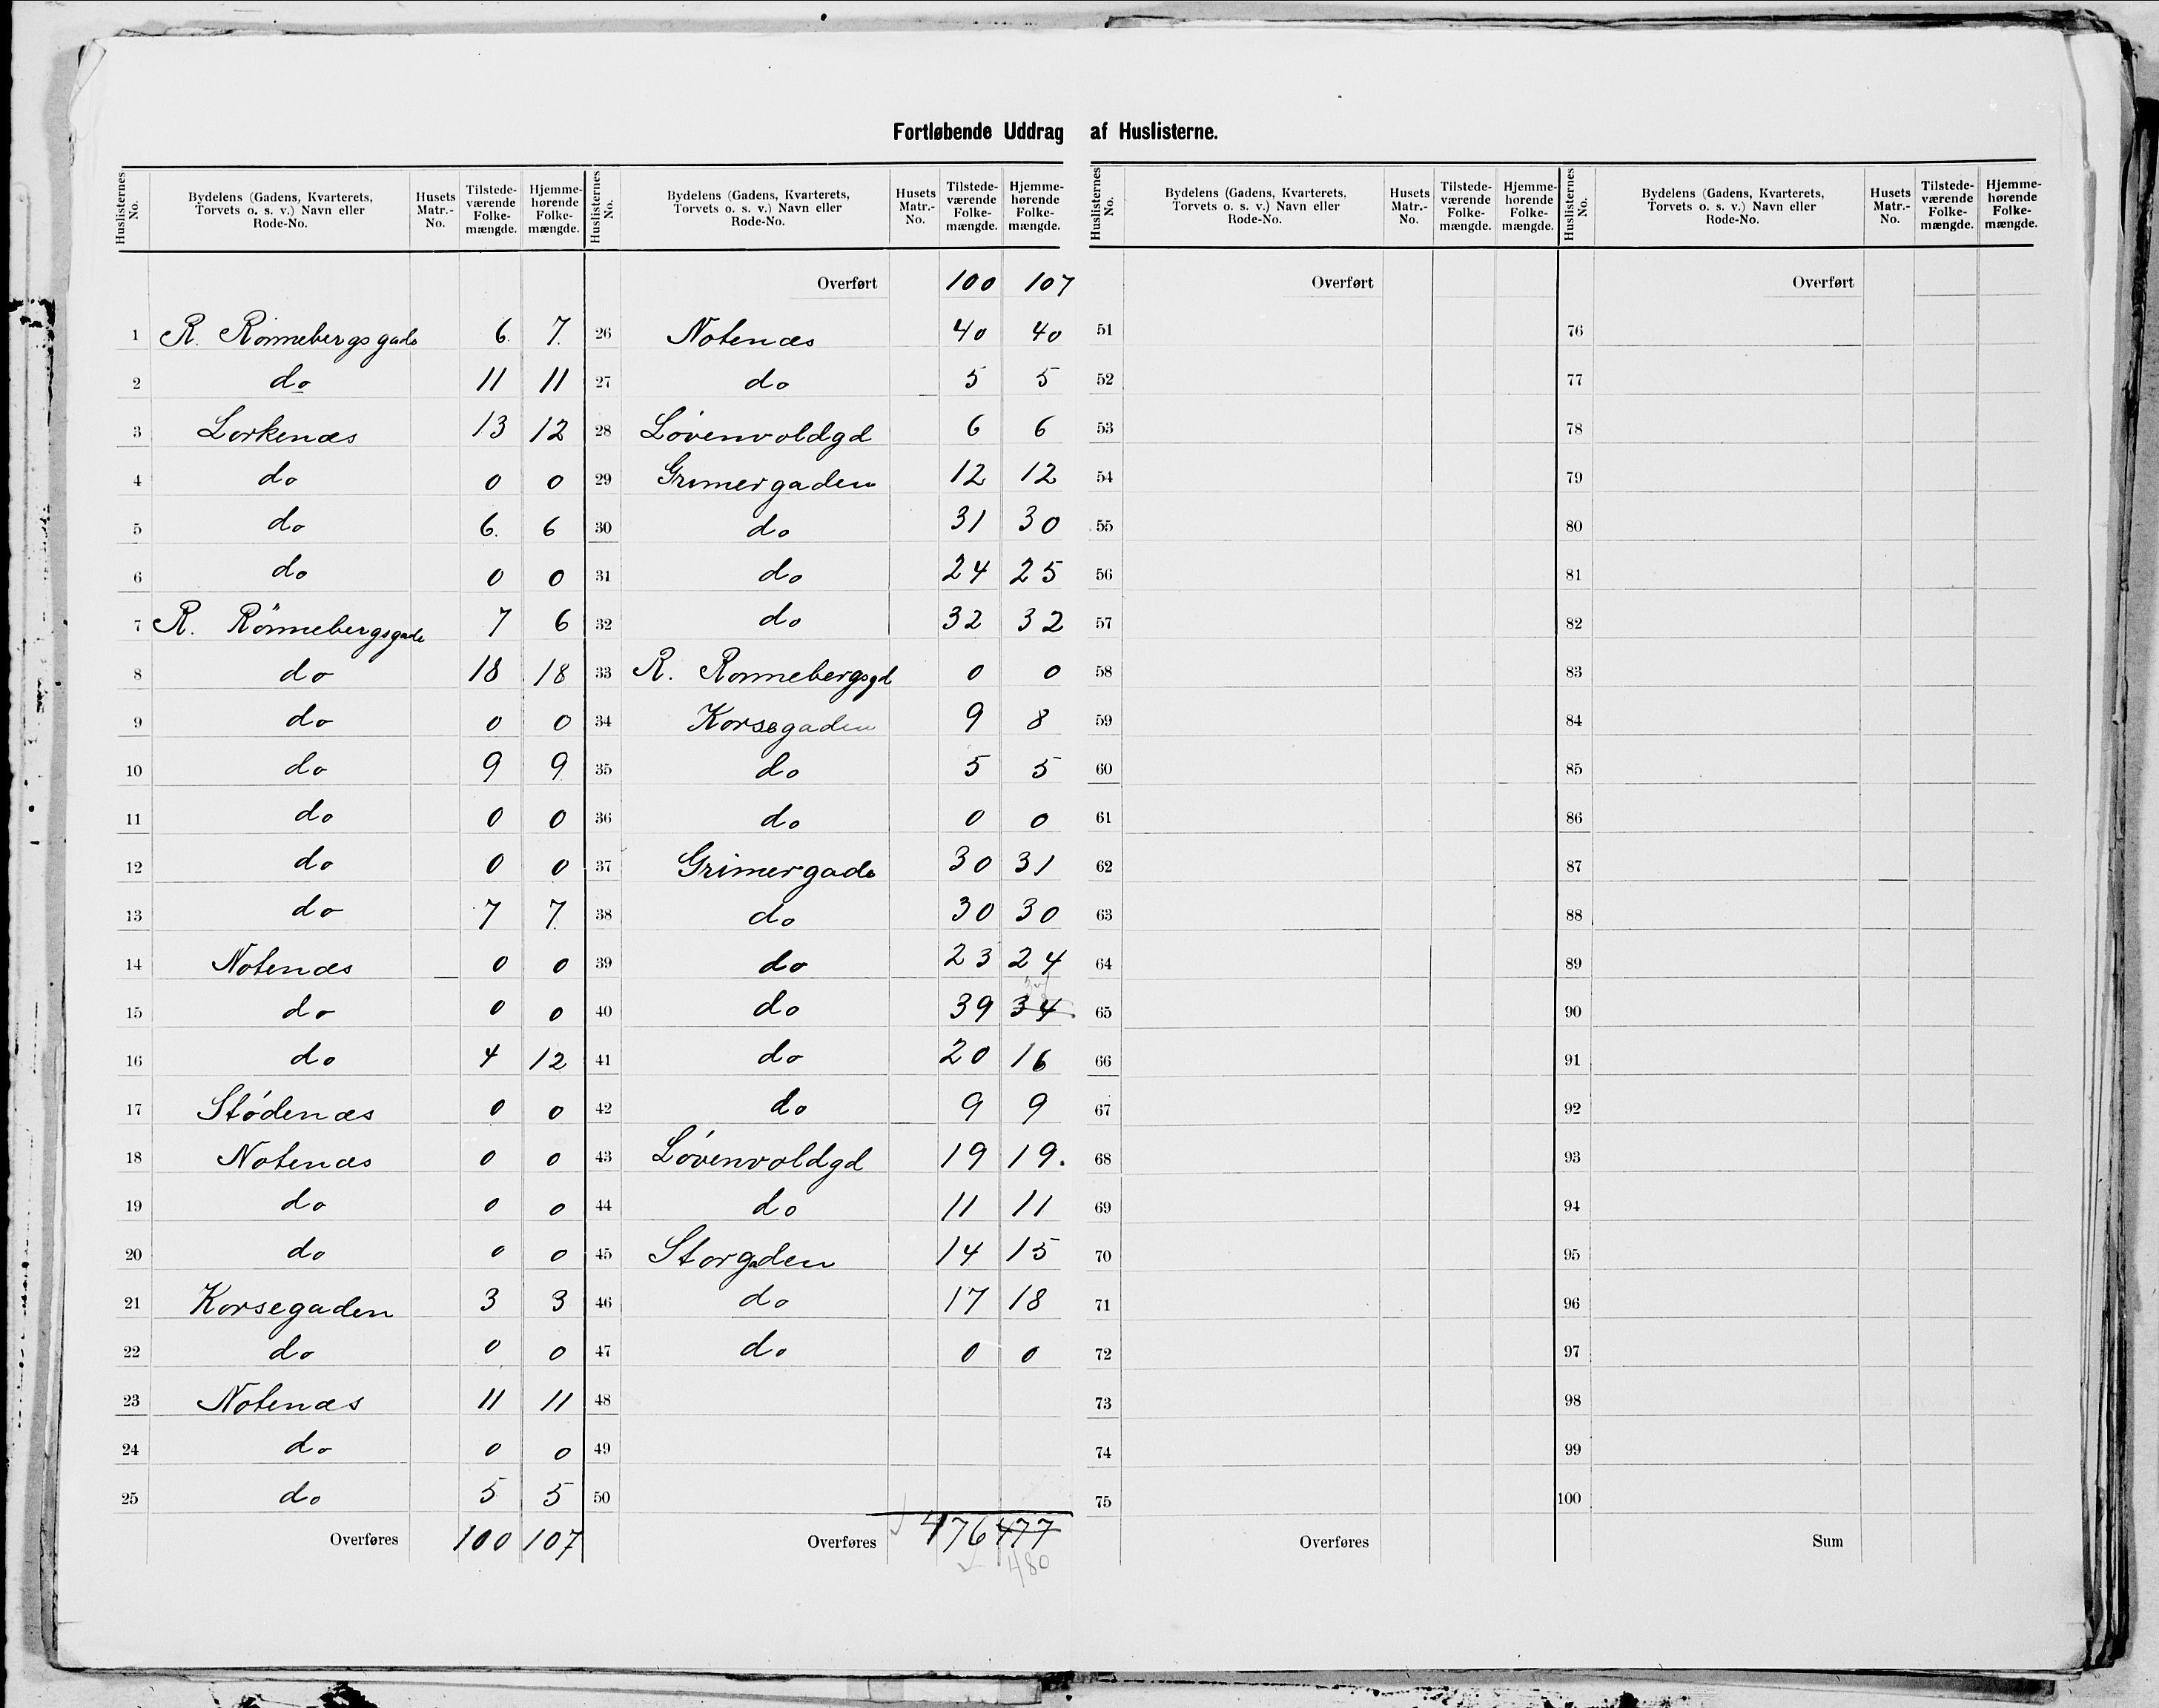 Fortløbende Uddrag af Huslisterne.
Huslisternes No. Bydelens (Gadens, Kvarterets, Torvets o. s. v.) Navn eller Rode-No. Husets Matr.-No. Tilstede-værende Folke-mængde. Hjemme-hørende Folke-mængde.
1 R. Rönnebergsgade 6. 7.
2 do 11 11
3 Lorkenæs 13 12
4 do 0 0
5 do 6. 6
6 do 0 0
7 R. Rönnebergsgade 7 6
8 do 18 18
9 do 0 0
10 do 9 9
11 do 0 0
12 do 0 0
13 do 7 7
14 Notenæs 0 0
15 do 0 0
16 do 4 12
17 Stødenæs 0 0
18 Notenæs 0 0
19 do 0 0
20 do 0 0
21 Korsegaden 3 3
22 do 0 0
23 Notenæs 11 11
24 do 0 0
25 do 5 5
Overføres 100 107
Huslisternes No. Bydelens (Gadens, Kvarterets, Torvets o. s. v.) Navn eller Rode-No. Husets Matr.-No. Tilstede-værende Folke-mængde. Hjemme-hørende Folke-mængde.
Overført 100 107
26 Notenæs 40 40
27 do 5 5
28 Løvenvoldgd 6 6
29 Grimergaden 12 12
30 do 31 30
31 do 24 25
32 do 32 32
33 R. Ronnebergsgd 0 0
34 Korsegaden 9 8
35 do 5 5
36 do 0 0
37 Grimergade 30 31
38 do 30 30
39 do 23 24
40 do 39 34
41 do 20 16
42 do 9 9
43 Løvenvoldgd 19 19.
44 do 11 11
45 Storgaden 14 15
46 do 17 18
47 do 0 0
48
49
50
Overføres 476 477
480
Huslisternes No. Bydelens (Gadens, Kvarterets, Torvets o. s. v.) Navn eller Rode-No. Husets Matr.-No. Tilstede-værende Folke-mængde. Hjemme-hørende Folke-mængde.
Overført
51
52
53
54
55
56
57
58
59
60
61
62
63
64
65
66
67
68
69
70
71
72
73
74
75
Overføres
Huslisternes No. Bydelens (Gadens, Kvarterets, Torvets o. s. v.) Navn eller Rode-No. Husets Matr.-No. Tilstede-værende Folke-mængde. Hjemme-hørende Folke-mængde.
Overført
76
77
78
79
80
81
82
83
84
85
86
87
88
89
90
91
92
93
94
95
96
97
98
99
100
Sum